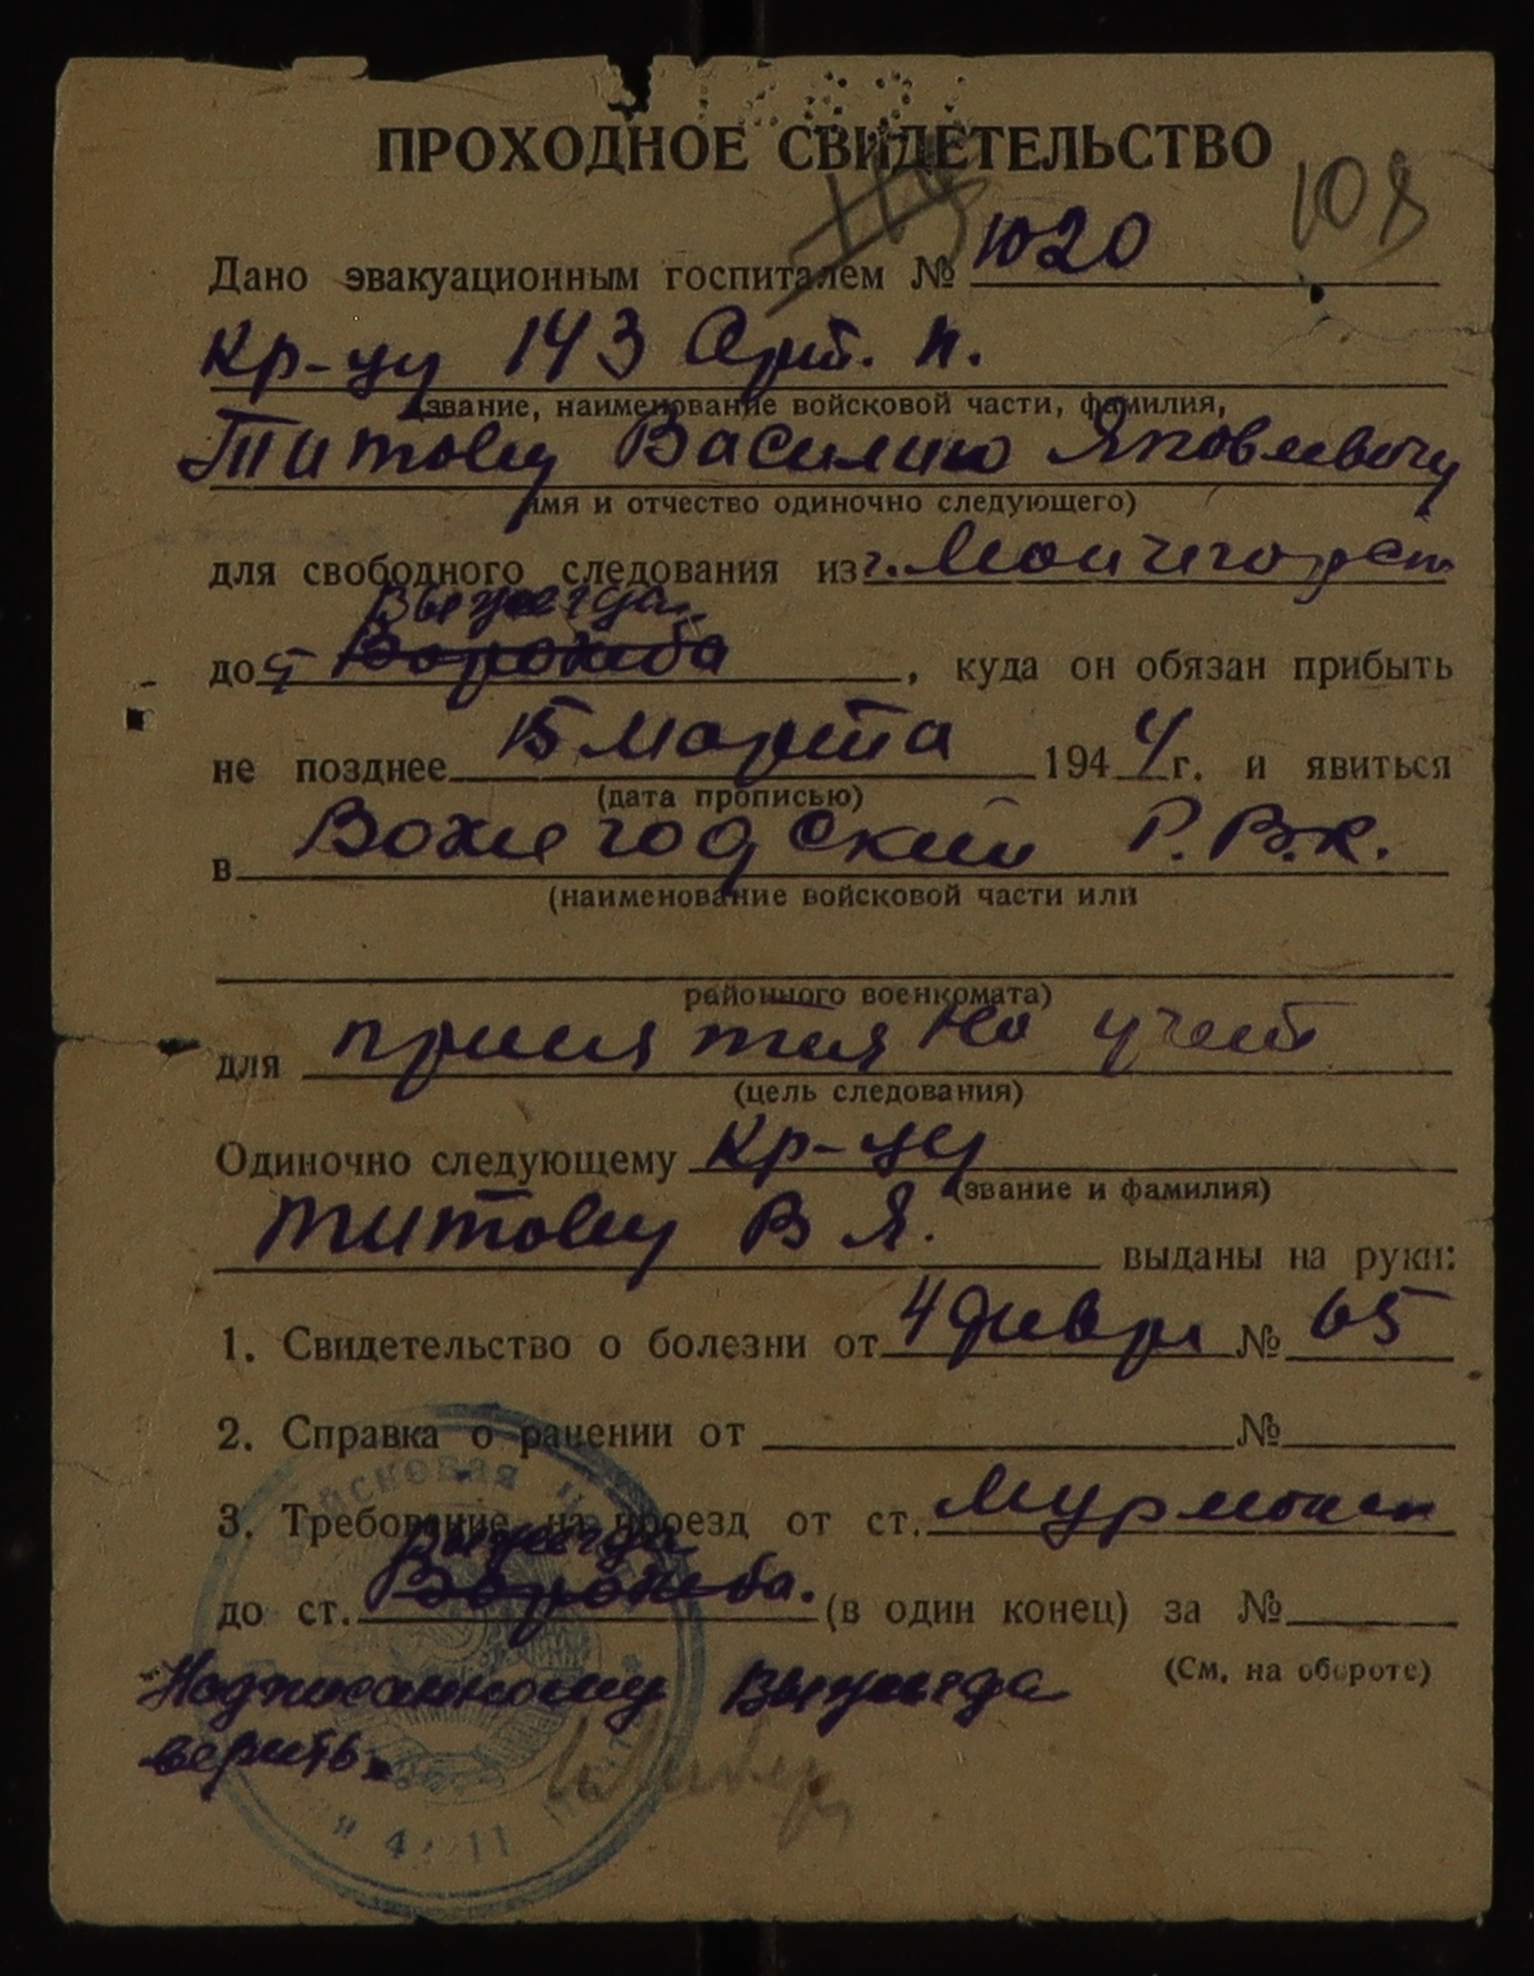 ПРОХОДНОЕ СВИДЕТЕЛЬСТВО
108
Дано эвакуационным госпиталем № 1020
Кр-цу 143 Арт. п.
(звание, наименование войсковой части, фамилия,
Титову Василию Яковлевичу
имя и отчество одиночно следующего)
для свободного следования из г.
Вычегда
до ст Ворожба, куда он обязан прибыть
не позднее 15 марта 1944 г. и явиться
(дата прописью)
в Вожегодский Р.В.К.
(наименование войсковой части или
районного военкомата)
для принятия на учет
(цель следования)
Одиночно следующему Кр-цу
(звание и фамилия)
Титову В Я. выданы на руки:
1. Свидетельство о болезни от 4 февр № 65
2. Справка о ранении от № 
3. Требование на проезд от ст. Мурманск
Вычегда
до ст. Ворожба. (в один конец) за №
(См, на обороте)
Надписанному Вычегда
верить.